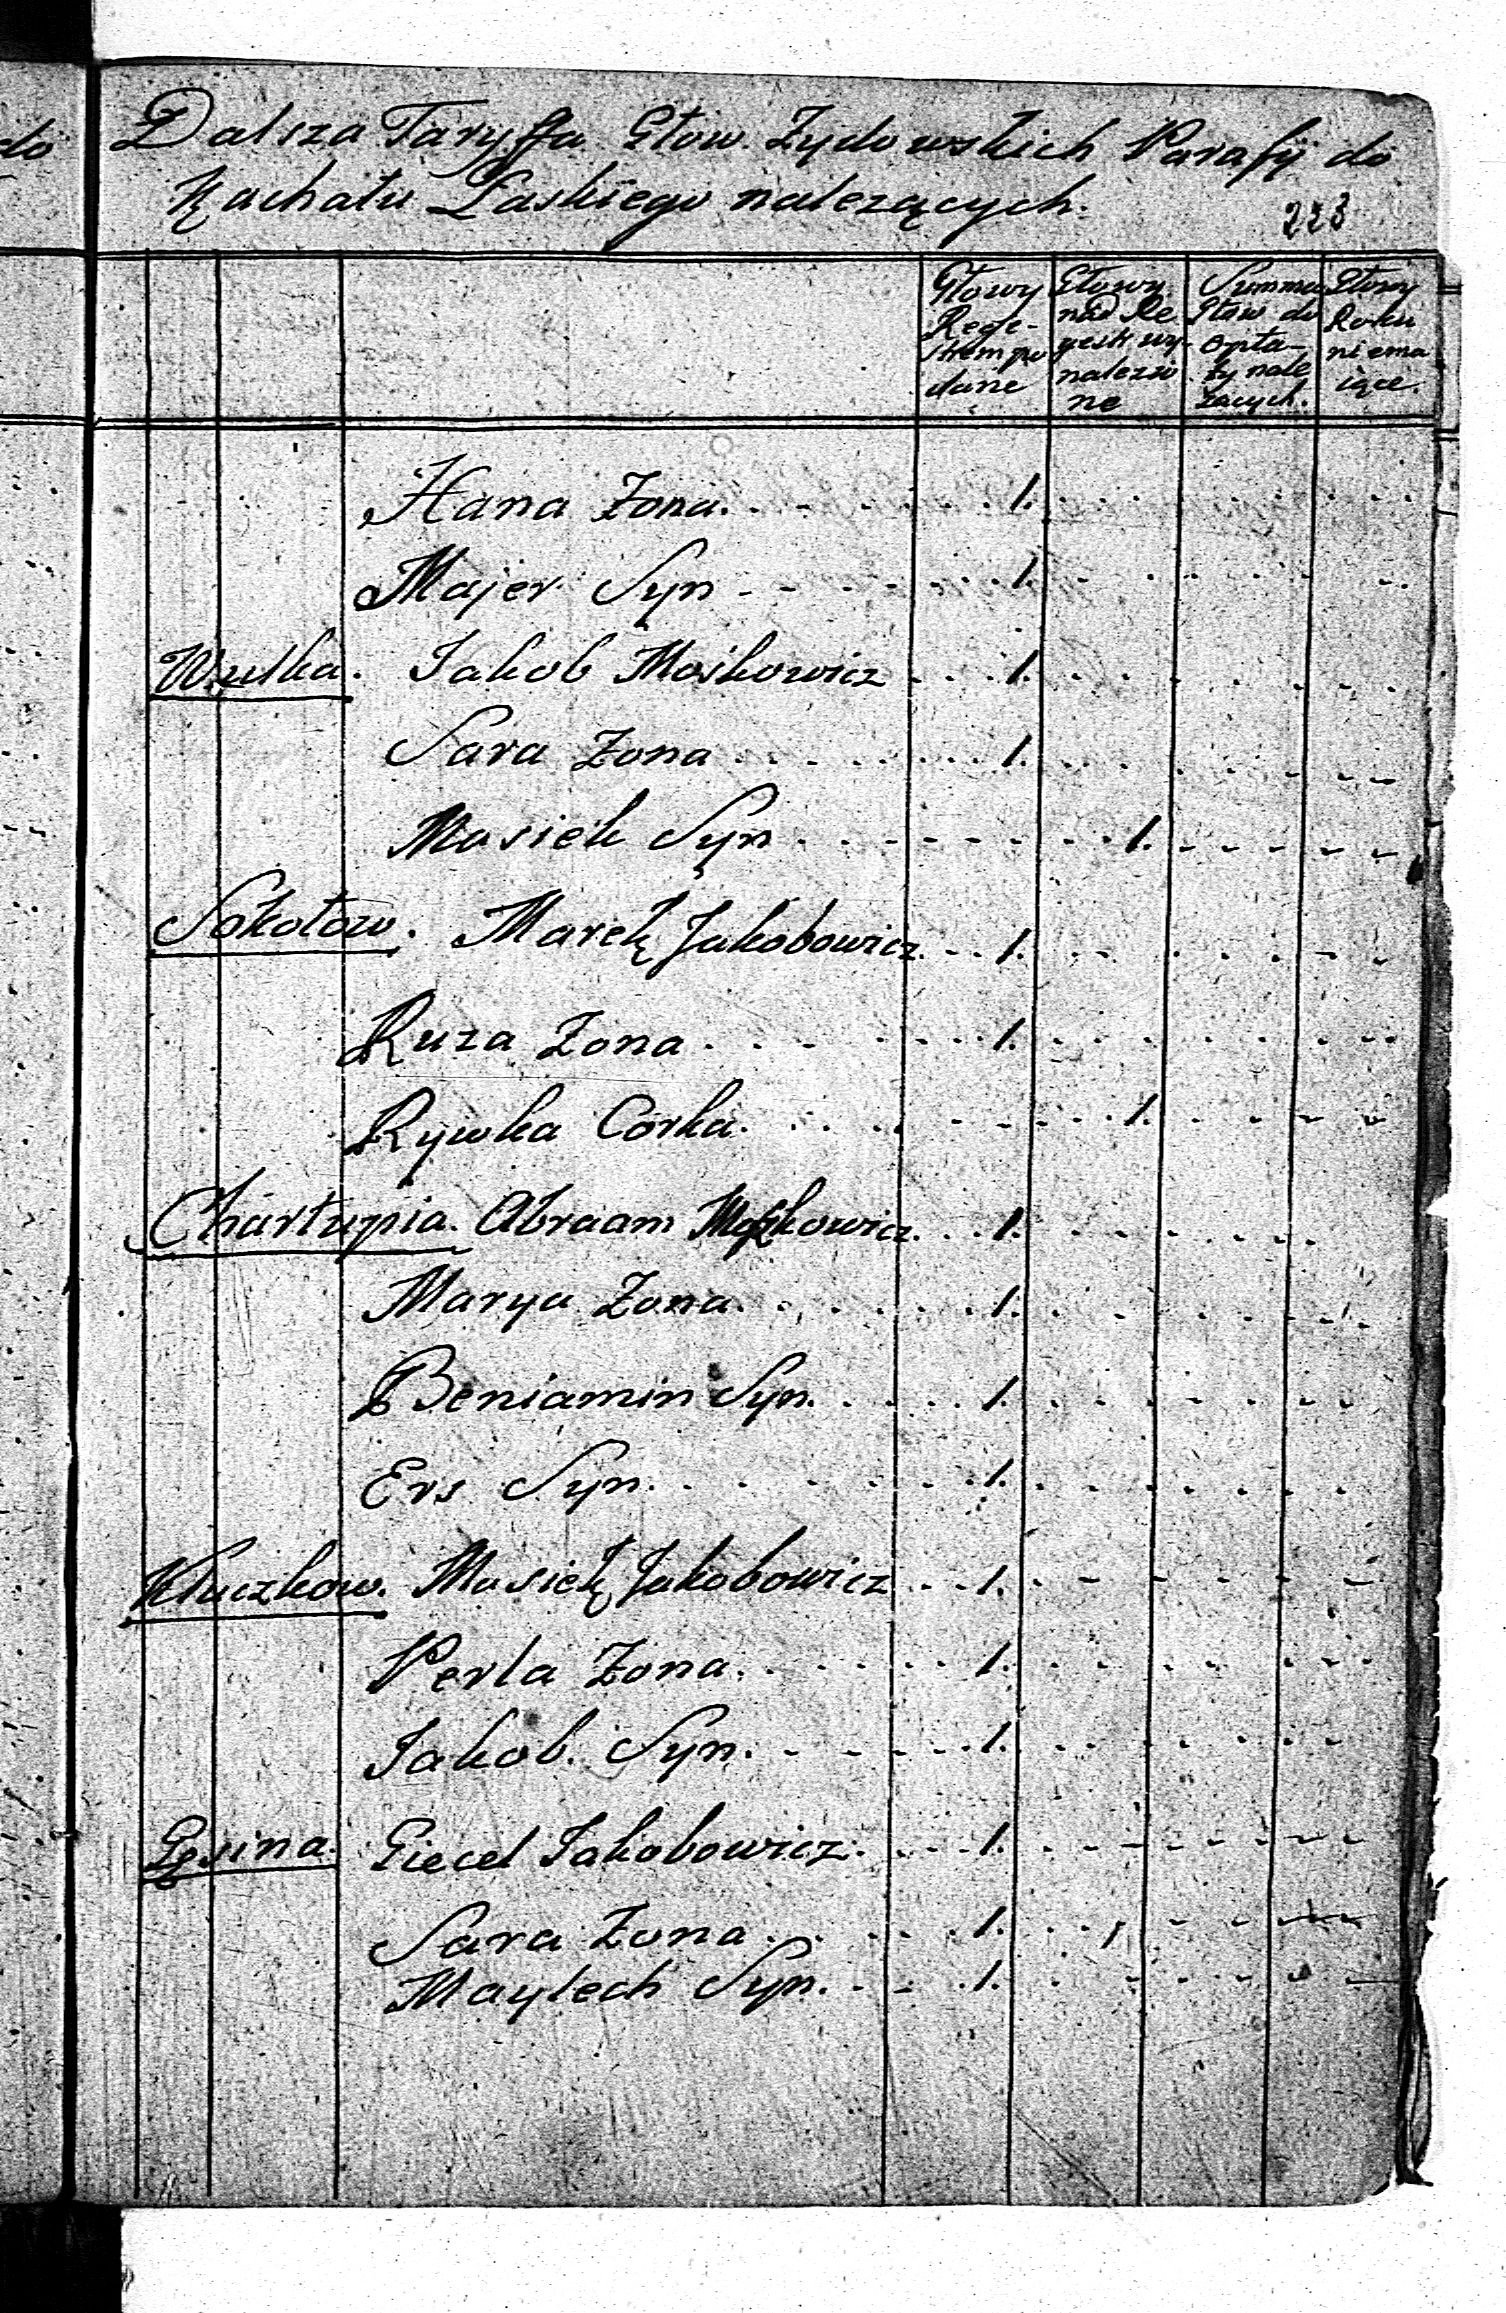 do
Dalsza Taryffa Głow. Zydowskich Parafij do
Kachału Laskiego nalezących.
223
Głowy Rege- strem po dane
Głowy nad Re gestr wy- nalezio ne
Summa Głow do opła- ty nale zących.
Głowy Roku niema iące.
Hana Zona. 1.
Majer Syn 1.
Wulka. Jakob Moskowicz 1.
Sara Zona 1.
Mosiek Syn 1.
Sokołow. Marek Jakobowicz 1.
Ruza Zona 1.
Rywka Corka. 1.
Chartupia. Abraam Moszkowicz. 1.
Marya Zona. 1.
Beniamin Syn. 1.
Ers Syn. 1.
Kluczkow. Mosiek Jakobowicz 1.
Perla Zona. 1.
Jakob. Syn. 1.
Giecel Jakobowicz. 1.
Sara Zona 1.
Maylech Syn. 1.